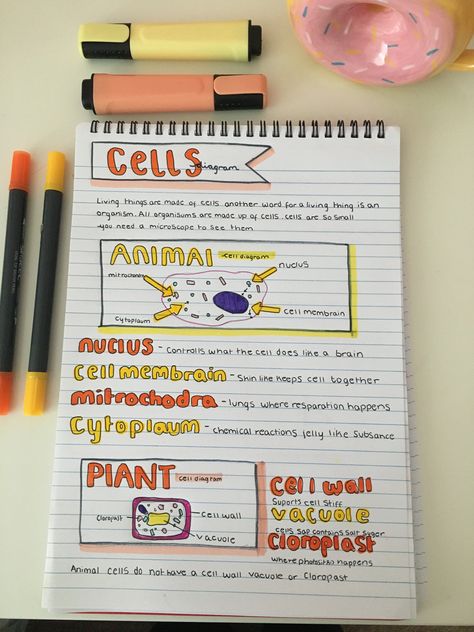 CELLS diagram
Living things are made of cells another word for a living thing is an
organism. All organisums are made up of cells. cells are so small
you need a microscope to see them
ANIMAL cell diagram
mitrochondria
nuclus
cytoplaum
cell membrain
nuclus - controlls what the cell does like a brain
cell membrain - Skin like keeps cell together
mitrochodra - lungs where resparation happens
cytoplaum - chemical reactions jelly like subsance
PLANT cell diagram
cloroplast
cell wall
vacuole
cell wall
Suports cell stiff
vacuole
cells sap contains salt suger
cloroplast
where photosithis happens
Animal cells do not have a cell wall vacuole or cloropast